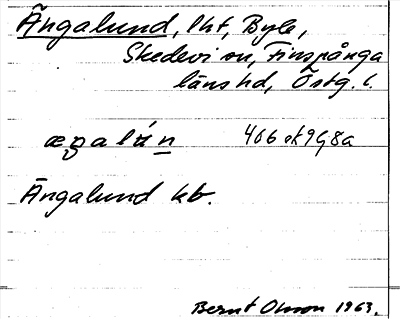 Ängalund, lht, Byle,
Skedevi sn, Finspånga
läns hd, Östg. l.
æŋalún 466 ek9Gj8a
Ängalund kb.
Bernt Olsson 1963.